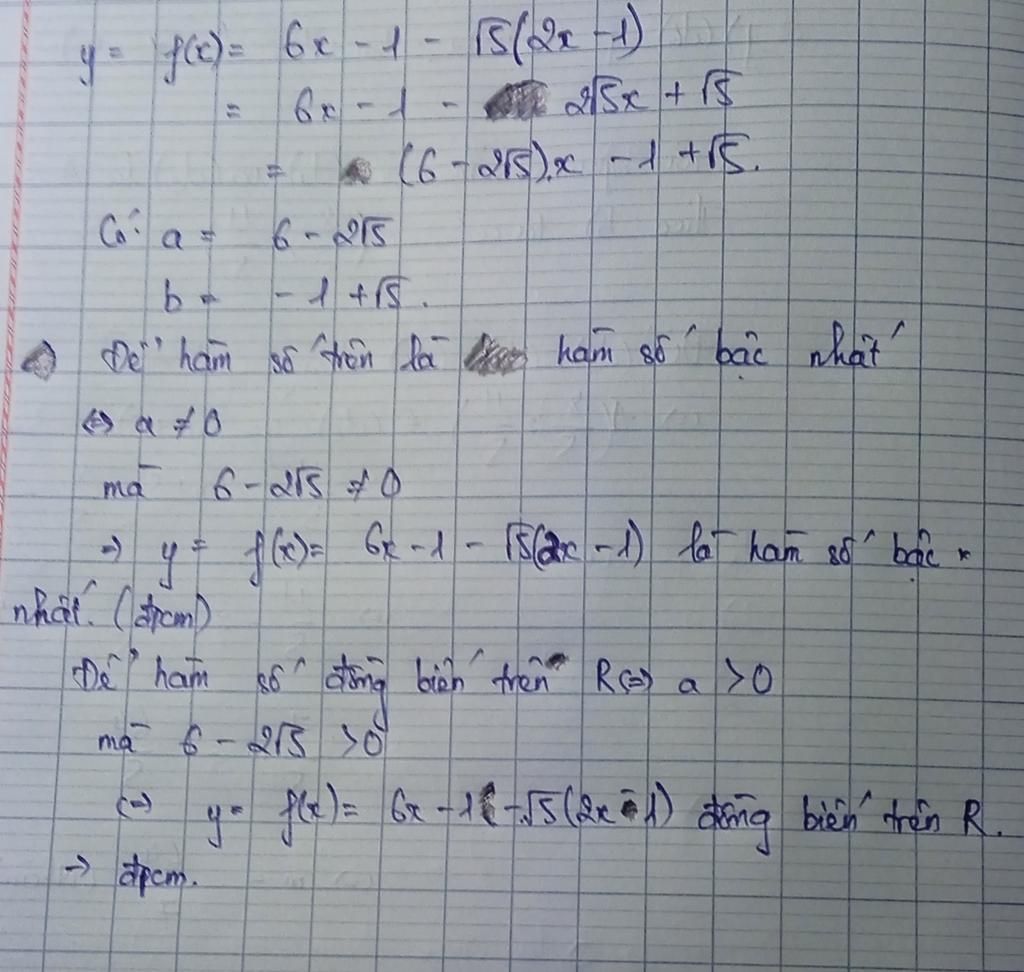 y = f(x) = 6x - 1 - √5(2x - 1)
= 6x - 1 - 2√5x + √5
= (6 - 2√5).x - 1 + √5.
Có: a = 6 - 2√5
b = - 1 + √5.
Để hàm số trên là hàm số bậc nhất
⇔ a ≠ 0
mà 6 - 2√5 ≠ 0
⇒ y = f(x) = 6x - 1 - √5(2x - 1) là hàm số bậc
nhất. (đpcm)
Để hàm số đồng biến trên R ⇔ a > 0
mà 6 - 2√5 > 0
⇔ y = f(x) = 6x - 1 - √5(2x - 1) đồng biến trên R.
→ đpcm.